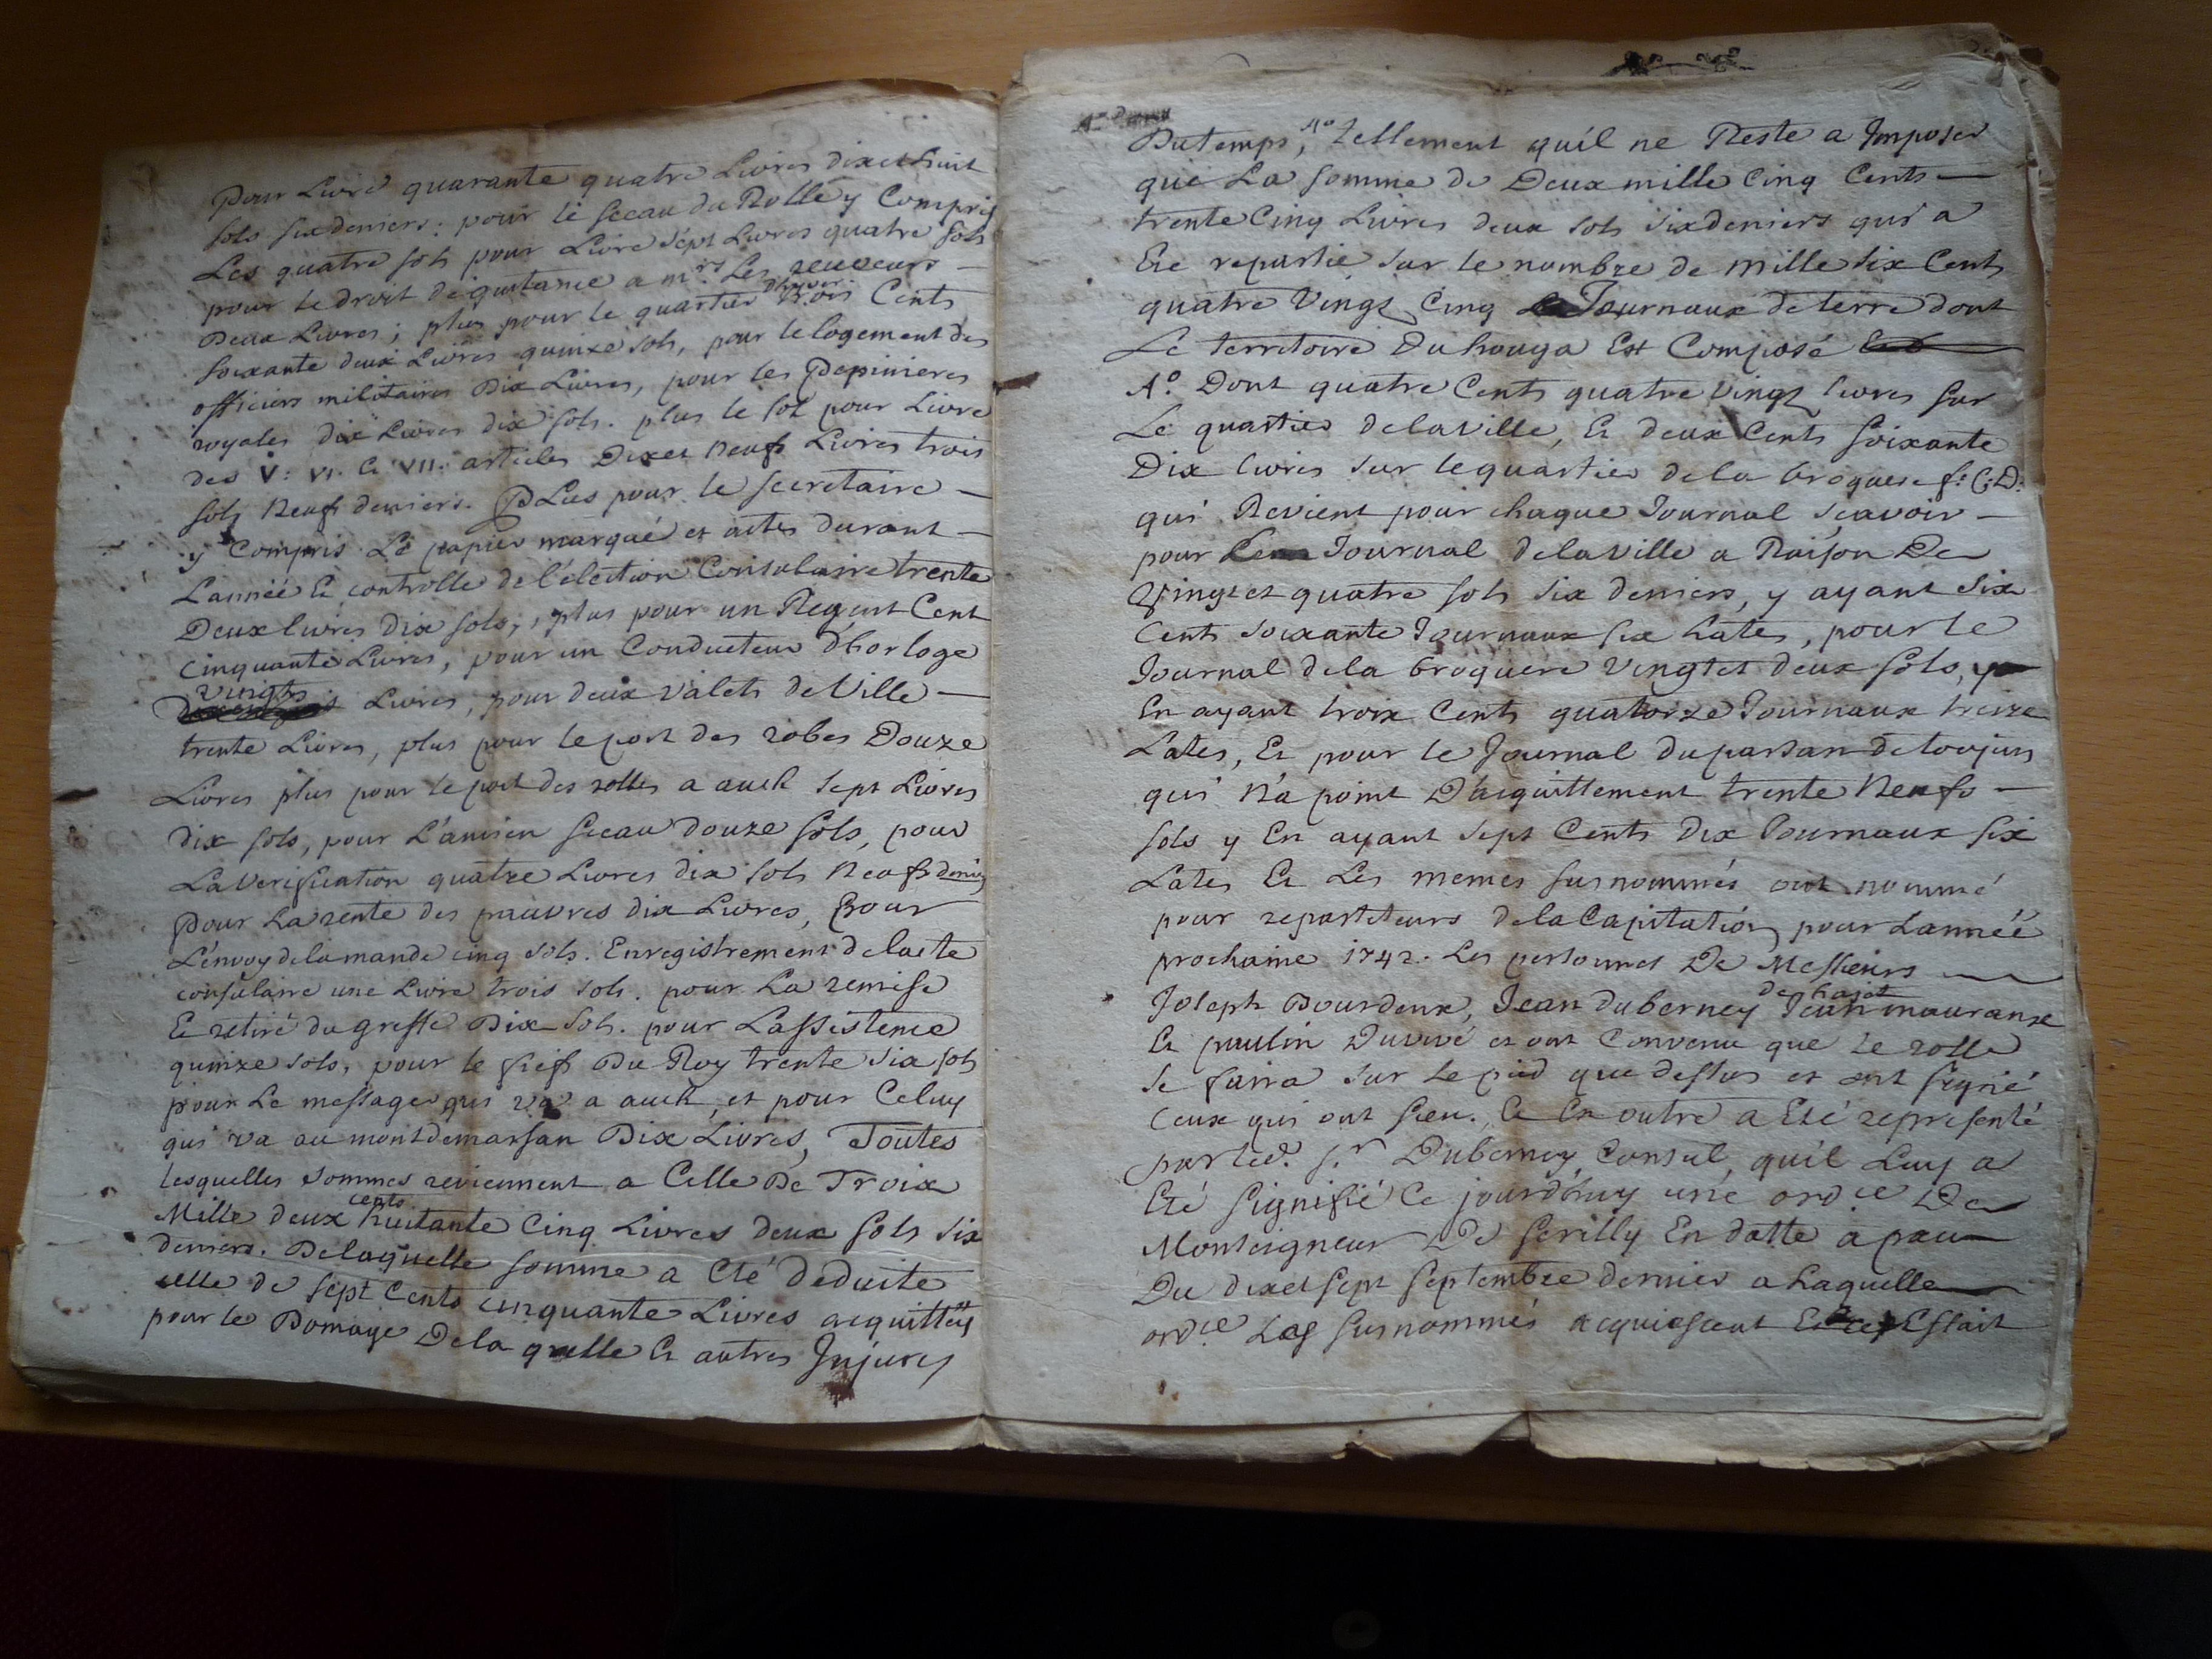 pour Livre quarante quatre Livres dix et huit
sols six deniers: pour le sceau du Rolle y Compris
Les quatre sols pour Livre sept Livres quatre sols
pour le droit de quitance a mrs. Les receveurs
deux Livres; plus pour le quartier d'hyver trois Cents
soixante deux Livres quinze sols, pour le logement des
officiers militaires dix Livres, pour les Pepinieres
royales dix Livres dix sols. plus le sol pour Livre
des V: VI. & VII. articles Dix et neufs Livres trois
sols neufs deniers. PLus pour le secretaire
y Compris Le papier marqué et actes durant
L'année & controlle de l'election Consulaire trente
Deux livres dix sols, plus pour un Regent Cent
cinquante Livres, pour un Conducteur d'horloge
vingts Livres, pour deux valets de Ville
trente Livres, plus pour le port des robes Douze
Livres plus pour le port des rolles a auch sept Livres
dix sols, pour L'ancien sceau douze sols, pour
La verification quatre Livres dix sols neufs deniers
pour La rente des pauvres dix Livres, pour
L'envoy de la mande cinq sols. Enregistrement de l'acte
consulaire une Livre trois sols. pour La remise
& retiré du greffe Dix sols. pour L'assistence
quinze sols, pour le fiefs Du Roy trente six sols
pour Le messager qui va a auch, et pour Celuy
qui va au mont de marsan Dix Livres, Toutes
lesquelles sommes reviennent a Celle De Troix
Mille deux cents huitante Cinq Livres deux sols six
deniers. De laquelle somme a été deduite
celle de sept Cents cinquante Livres acquittéés
pour le Domage De la grelle & autres Injures
Du temps, tellement qu'il ne Reste a Imposer
que La somme de Deux mille Cinq Cents
trente Cinq Livres deux sols six deniers qui a
Eté repartie sur le nombre de mille six Cents
quatre Vingt Cinq Journaux de terre dont
Le territoire Du houga Est Composé
A°. Dont quatre Cents quatre Vingt livres sur
Le quartier de la ville, & deux Cents soixante
Dix livres sur le quartier de la broquere
qui Revient pour chaque Journal scavoir
pour Journal de la ville a Raison De
Vingt et quatre sols six deniers, y ayant six
Cents soixante Journaux six Lates, pour le
Journal de la broquere vingt et deux sols,
En ayant troix Cents quatorze Journaux treize
Lates, & pour le Journal du parsan de toujun
qui n'a point D'acquittement trente Neufs
sols y En ayant sept Cents Dix Journaux six
Lates & Les memes susnommés ont nommé
pour repartiteurs de la Capitation pour L'année
prochaine 1742. Les personnes De Messieurs
Joseph Bourdeux, Jean duberney Jean mauranx
& paulin Duvivé et ont Convenu que le rolle
se faira sur le pied que dessus et ont signé
ceux qui ont sceu. & En outre a Eté representé
par led. sr. Duberney, Consul, qu'il Luy a
Eté signifié Ce jourd'huy une ordce De
Monseigneur De serilly En datte a pau
Du dix et sept septembre dernier a Laquelle
ordce Les susnommés acquiescent